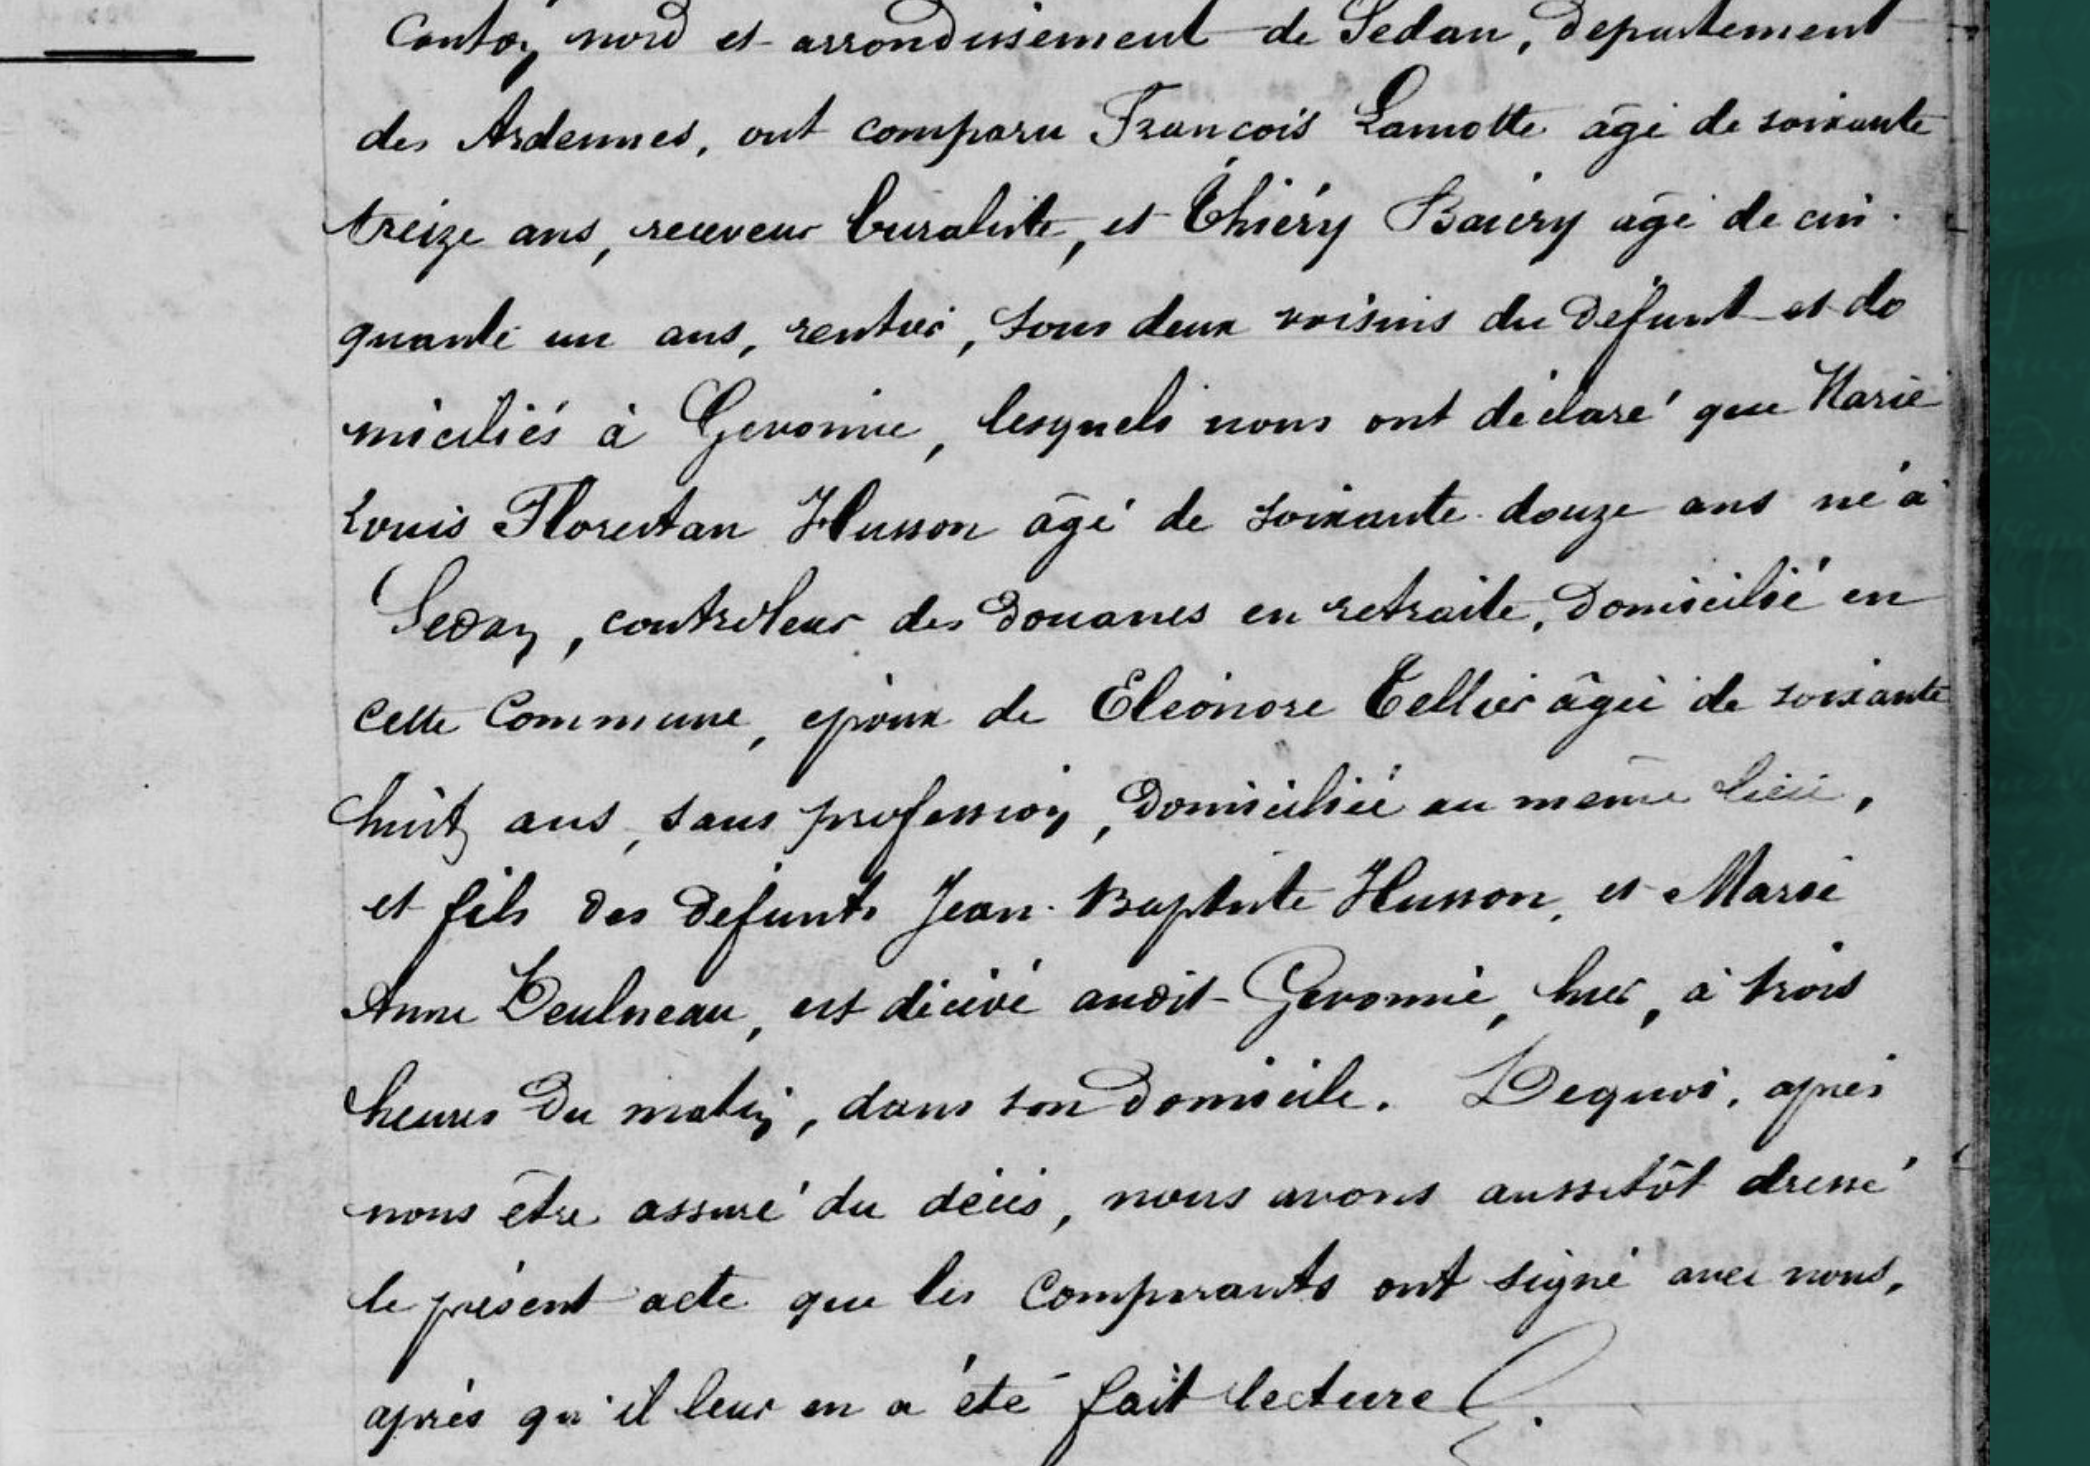 Canton nord et arrondissement de Sedan, département
des Ardennes, ont comparu Francois Lamotte âgé de soixante
treize ans, receveur buraliste, et Thiéry Baüry âgé de cin-
quante un ans, rentier, tous deux voisins du défunt et do
miciliés à Givonne, lesquels nous ont déclaré que Marie
Louis Florestan Husson âgé de soixante douze ans né à
Sedan, contrôleur des Douanes en retraite, Domicilié en
cette Commune, époux de Eléonore Tellier âgée de soixante
huit ans, sans profession, Domiciliée au même lieu,
et fils des défunts Jean-Baptiste Husson, et Marie
Anne Deulneau, est décédé audit Givonne, hier, à trois
heures du matin, dans son Domicile. Dequoi, après
nous être assuré du décès, nous avons aussitôt dressé
le présent acte que les Comparants ont signé avec nous,
après qu'il leur en a été fait lecture.